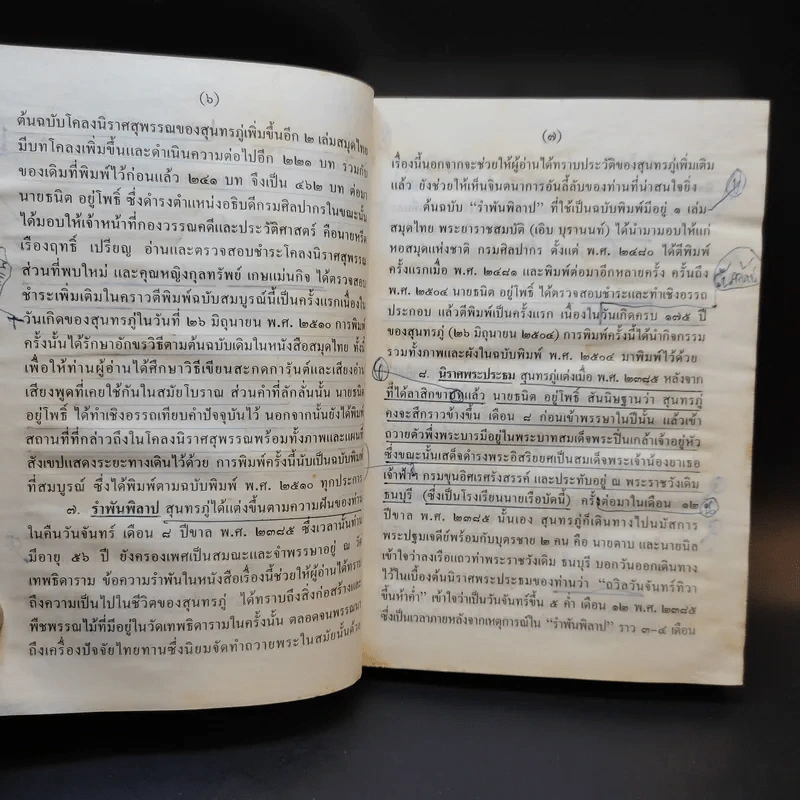 (๖)
ต้นฉบับโคลงนิราศสุพรรณของสุนทรภู่เพิ่มขึ้นอีก ๒ เล่มสมุดไทย
มีบทโคลงเพิ่มขึ้นและดำเนินความต่อไปอีก ๒๒๑ บท รวมกับ
ของเดิมที่พิมพ์ไว้ก่อนแล้ว ๒๔๑ บท จึงเป็น ๔๖๒ บท ต่อมา
นายธนิต อยู่โพธิ์ ซึ่งดำรงตำแหน่งอธิบดีกรมศิลปากรในขณะนั้น
ได้มอบให้เจ้าหน้าที่กองวรรณคดีและประวัติศาสตร์ คือนายหรีด
เรืองฤทธิ์ เปรียญ อ่านและตรวจสอบชำระโคลงนิราศสุพรรณ
ส่วนที่พบใหม่ และคุณหญิงกุลทรัพย์ เกษแม่นกิจ ได้ตรวจสอบ
ชำระเพิ่มเติมในคราวตีพิมพ์ฉบับสมบูรณ์นี้เป็นครั้งแรกเนื่องใน
วันเกิดของสุนทรภู่ในวันที่ ๒๖ มิถุนายน พ.ศ. ๒๕๑๐ การพิมพ์
ครั้งนั้นได้รักษาอักขรวิธีตามต้นฉบับเดิมในหนังสือสมุดไทย ทั้งนี้
เพื่อให้ท่านผู้อ่านได้ศึกษาวิธีเขียนสะกดการันต์และเสียงอ่าน
เสียงพูดที่เคยใช้กันในสมัยโบราณ ส่วนคำที่ลักลั่นนั้น นายธนิต
อยู่โพธิ์ ได้ทำเชิงอรรถเทียบคำปัจจุบันไว้ นอกจากนั้นยังได้พิมพ์
สถานที่ที่กล่าวถึงในโคลงนิราศสุพรรณพร้อมทั้งภาพและแผนที่
สังเขปแสดงระยะทางเดินไว้ด้วย การพิมพ์ครั้งนี้นับเป็นฉบับพิมพ์
ที่สมบูรณ์ ซึ่งได้พิมพ์ตามฉบับพิมพ์ พ.ศ. ๒๕๑๐ ทุกประการ
๗. รำพันพิลาป สุนทรภู่ได้แต่งขึ้นตามความฝันของท่าน
ในคืนวันจันทร์ เดือน ๘ ปีขาล พ.ศ. ๒๓๘๕ ซึ่งเวลานั้นท่าน
มีอายุ ๕๖ ปี ยังครองเพศเป็นสมณะและจำพรรษาอยู่ ณ วัด
เทพธิดาราม ข้อความรำพันในหนังสือเรื่องนี้ช่วยให้ผู้อ่านได้ทราบ
ถึงความเป็นไปในชีวิตของสุนทรภู่ ได้ทราบถึงสิ่งก่อสร้างและ
พืชพรรณไม้ที่มีอยู่ในวัดเทพธิดารามในครั้งนั้น ตลอดจนพรรณนา
ถึงเครื่องปัจจัยไทยทานซึ่งนิยมจัดทำถวายพระในสมัยนั้นด้วย
(๗)
เรื่องนี้นอกจากจะช่วยให้ผู้อ่านได้ทราบประวัติของสุนทรภู่เพิ่มเติม
แล้ว ยังช่วยให้เห็นจินตนาการอันลี้ลับของท่านที่น่าสนใจยิ่ง
ต้นฉบับ “รำพันพิลาป” ที่ใช้เป็นฉบับพิมพ์มีอยู่ ๑ เล่ม
สมุดไทย พระยาราชสมบัติ (เอิบ บุรานนท์) ได้นำมามอบให้แก่
หอสมุดแห่งชาติ กรมศิลปากร ตั้งแต่ พ.ศ. ๒๔๘๐ ได้ตีพิมพ์
ครั้งแรกเมื่อ พ.ศ. ๒๔๘๑ และพิมพ์ต่อมาอีกหลายครั้ง ครั้นถึง
พ.ศ. ๒๕๐๔ นายธนิต อยู่โพธิ์ ได้ตรวจสอบชำระและทำเชิงอรรถ
ประกอบ แล้วตีพิมพ์เป็นครั้งแรก เนื่องในวันเกิดครบ ๑๗๕ ปี
ของสุนทรภู่ (๒๖ มิถุนายน ๒๕๐๔) การพิมพ์ครั้งนี้ได้นำกิจกรรม
รวมทั้งภาพและผังในฉบับพิมพ์ พ.ศ. ๒๕๐๔ มาพิมพ์ไว้ด้วย
๘. นิราศพระประธม สุนทรภู่แต่งเมื่อ พ.ศ. ๒๓๘๕ หลังจาก
ที่ได้ลาสิกขาบทแล้ว นายธนิต อยู่โพธิ์ สันนิษฐานว่า สุนทรภู่
คงจะสึกราวข้างขึ้น เดือน ๘ ก่อนเข้าพรรษาในปีนั้น แล้วเข้า
ถวายตัวพึ่งพระบารมีอยู่ในพระบาทสมเด็จพระปิ่นเกล้าเจ้าอยู่หัว
ซึ่งขณะนั้นเสด็จดำรงพระอิสริยยศเป็นสมเด็จพระเจ้าน้องยาเธอ
เจ้าฟ้าฯ กรมขุนอิศเรศรังสรรค์ และประทับอยู่ ณ พระราชวังเดิม
ธนบุรี (ซึ่งเป็นโรงเรียนนายเรือบัดนี้) ครั้งต่อมาในเดือน ๑๒
ปีขาล พ.ศ. ๒๓๘๕ นั้นเอง สุนทรภู่ก็เดินทางไปนมัสการ
พระปฐมเจดีย์พร้อมกับบุตรชาย ๒ คน คือ นายตาบ และนายนิล
เข้าใจว่าลงเรือแถวท่าพระราชวังเดิม ธนบุรี บอกวันออกเดินทาง
ไว้ในเบื้องต้นนิราศพระประธมของท่านว่า “ถวิลวันจันทร์ทิวา
ขึ้นห้าค่ำ” เข้าใจว่าเป็นวันจันทร์ขึ้น ๕ ค่ำ เดือน ๑๒ พ.ศ. ๒๓๘๕
ซึ่งเป็นเวลาภายหลังจากเหตุการณ์ใน “รำพันพิลาป” ราว ๓-๔ เดือน